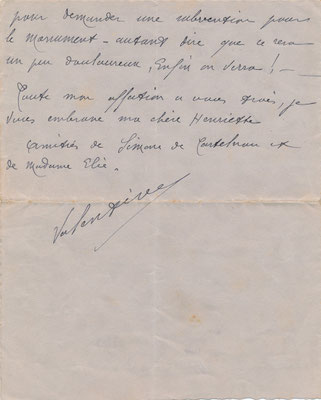 pour demander une subvention pour
le Monument – autant dire que ce sera
un peu douloureux, Enfin on verra ! –
Toute mon affection a vous trois, je
vous embrasse ma chère Henriette
amitiés de Simone de Castelnau et
de Madame Elie.
Valentine